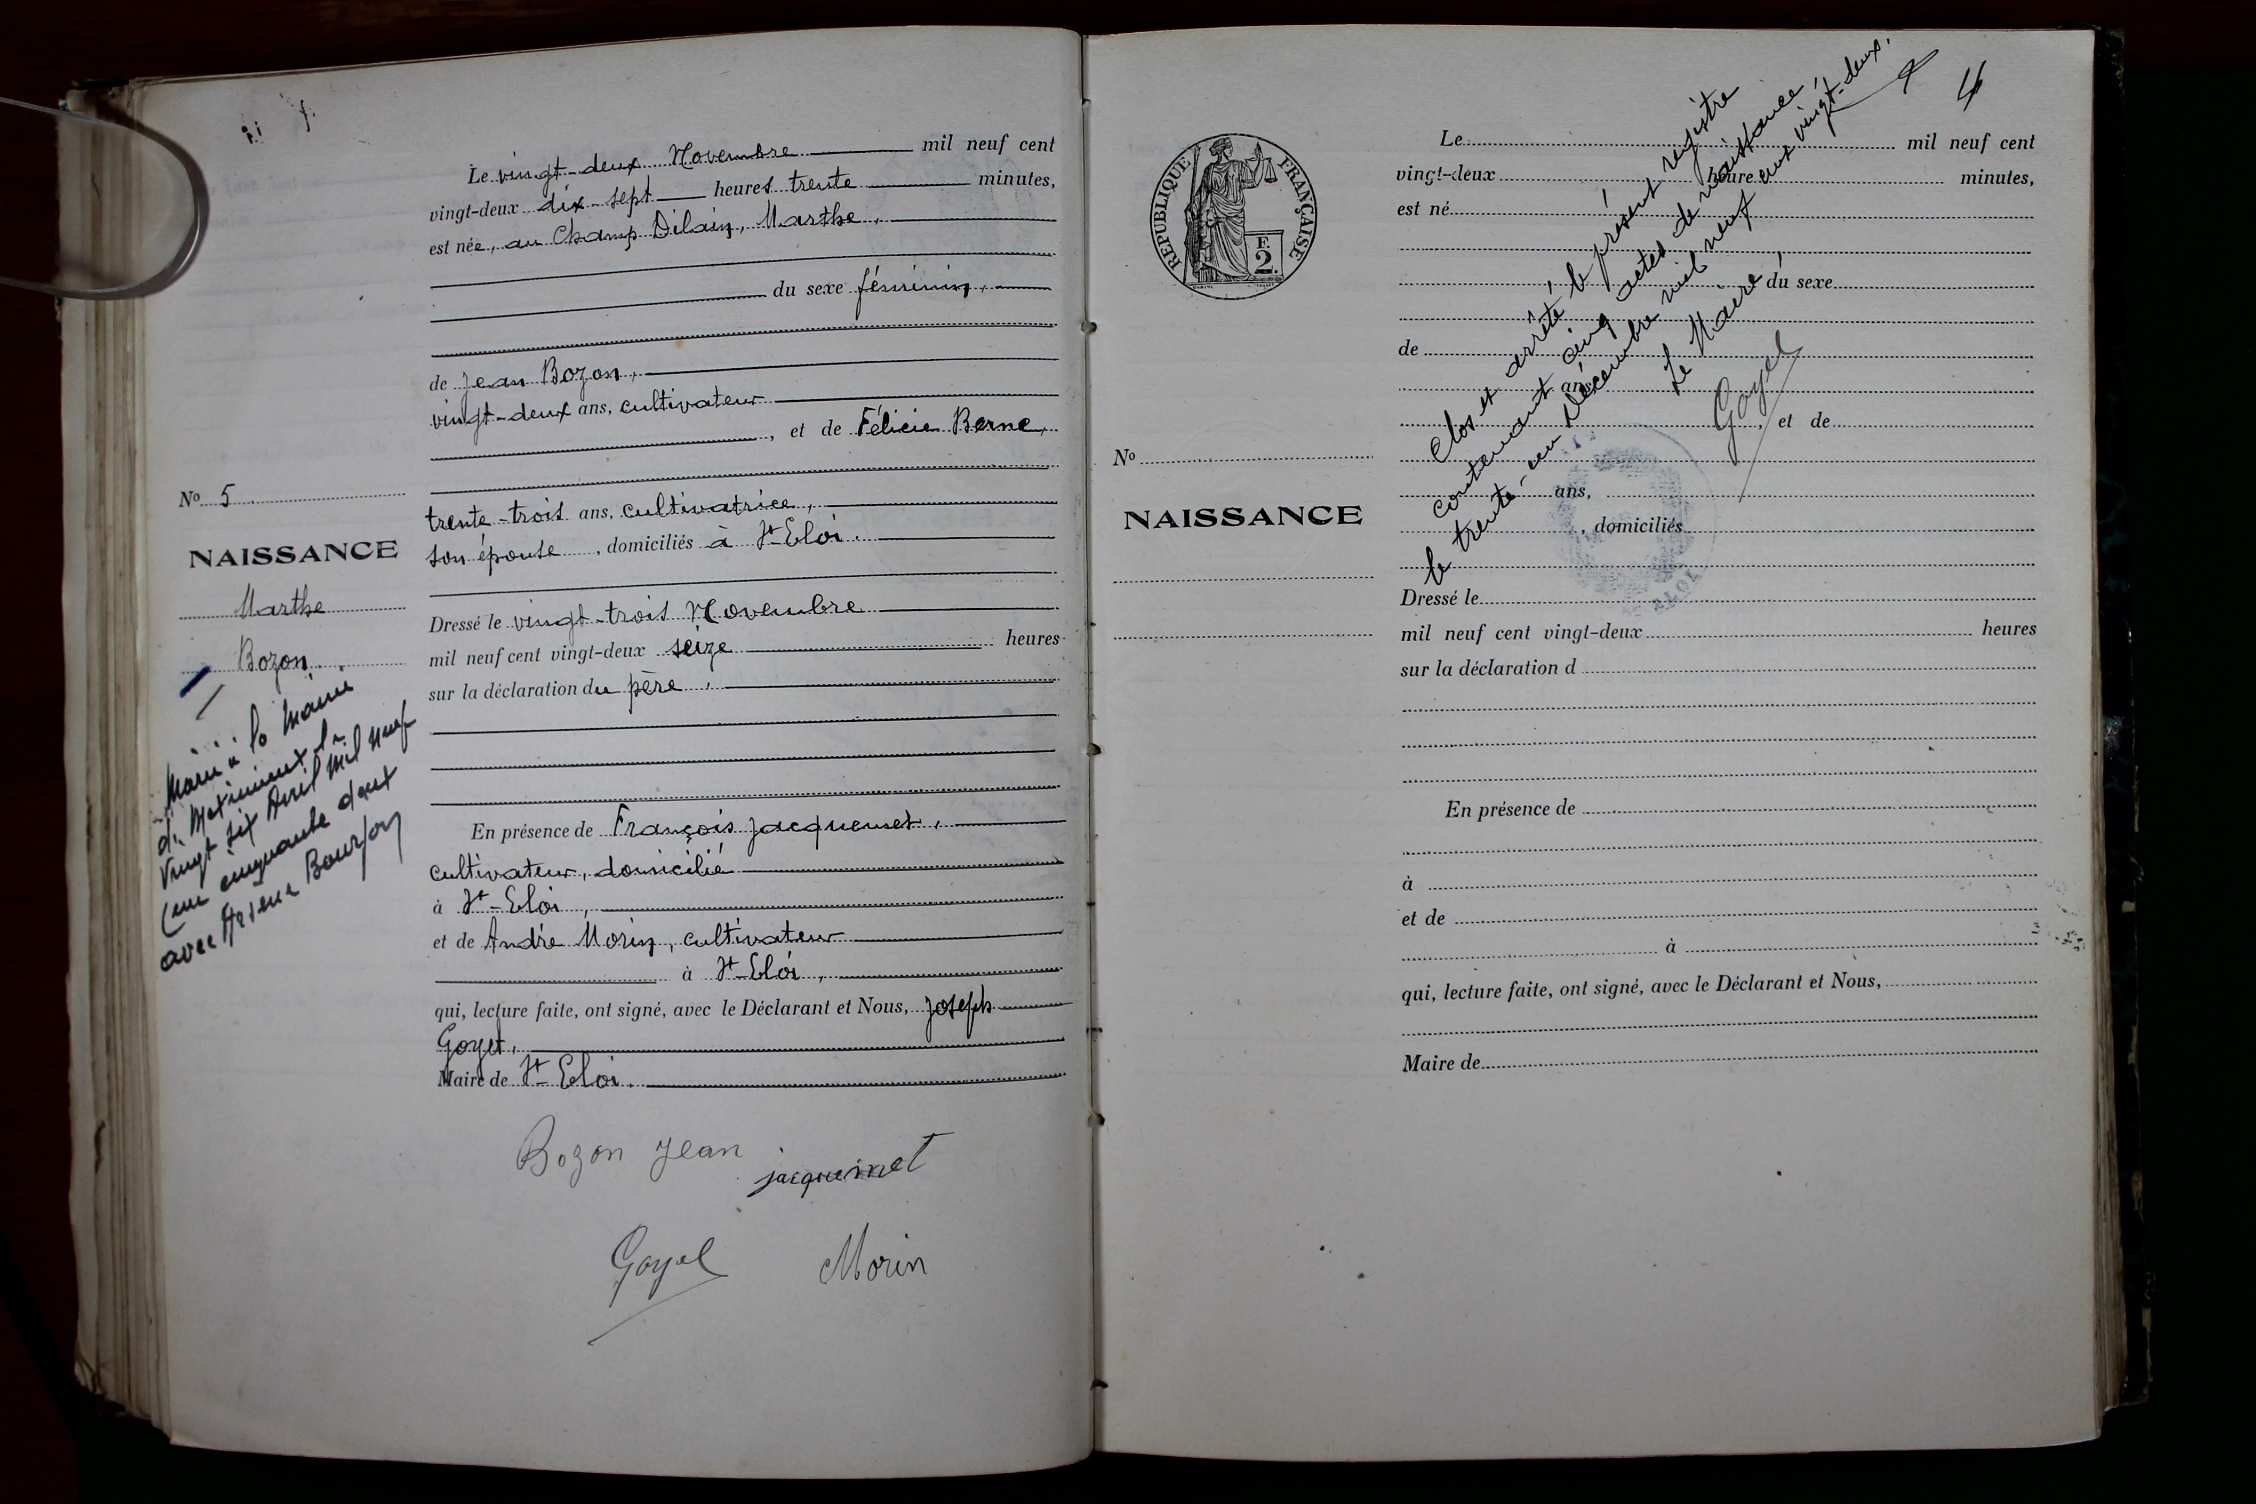 Le vingt-deux Novembre mil neuf cent
vingt-deux dix-sept heures trente minutes,
est née, au Champ Dilain, Marthe,
du sexe féminin,
de Jean Bozon,
vingt-deux ans, cultivateur
, et de Félicie Berne,
trente-trois ans, cultivatrice,
son épouse, domiciliés à St-Eloi.
Dressé le vingt-trois Novembre
mil neuf cent vingt-deux seize heures
sur la déclaration du père,
En présence de François Jacquemet,
cultivateur, domicilié
à St-Eloi,
et de André Morin, cultivateur
à St-Eloi,
qui, lecture faite, ont signé, avec le Déclarant et Nous, Joseph
Goyet,
Maire de St-Eloi.
Bozon Jean
jacquemet
Goyet
Morin
No 5
NAISSANCE
Marthe
Bozon.
Marié à la Mairie
de Meximieux le
Vingt six Avril Mil neuf
cent cinquante deux
avec
4
RÉPUBLIQUE FRANÇAISE
F.
2.
No
NAISSANCE
Le mil neuf cent
vingt-deux heure minutes,
est né
du sexe
de
ans
, et de
ans,
, domiciliés
Dressé le
mil neuf cent vingt-deux heures
sur la déclaration d
En présence de
à
et de
à
qui, lecture faite, ont signé, avec le Déclarant et Nous,
Maire de
Clos et arrêté le présent registre
contenant cinq actes de naissance,
le trente-un Décembre mil neuf cent vingt-deux.
Le Maire,
Goyet